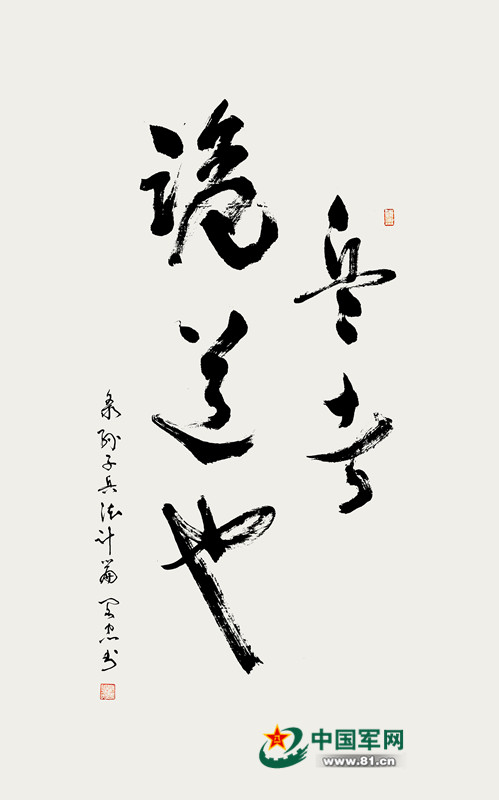 兵者
诡道也
录孙子兵法计篇 书
中国军网
www.81.cn